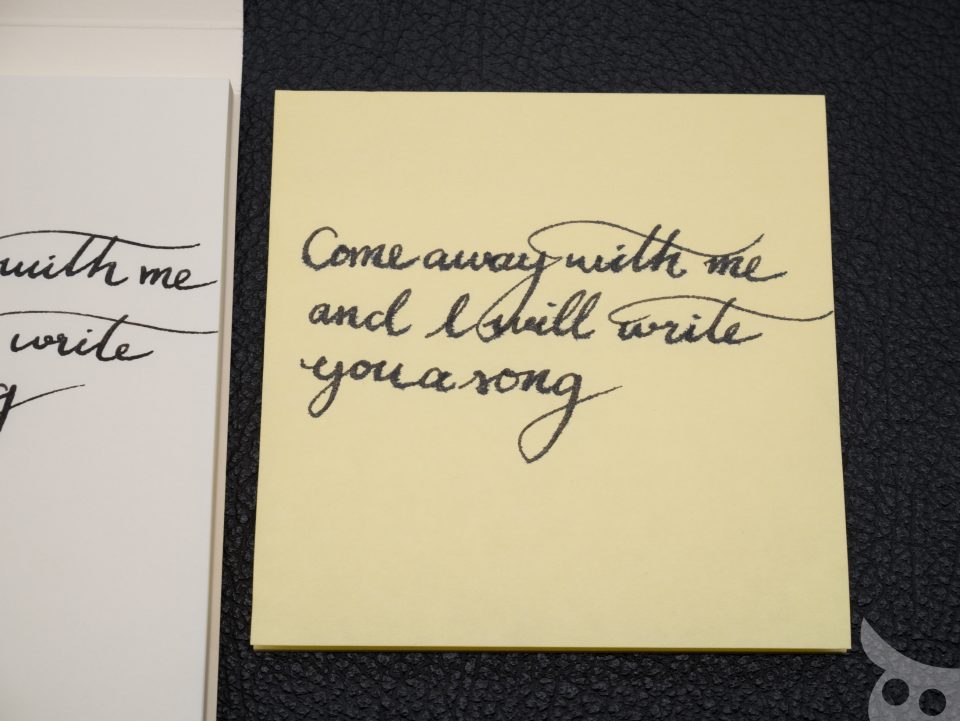 with me
write
g
Come away with me
and I will write
you a song